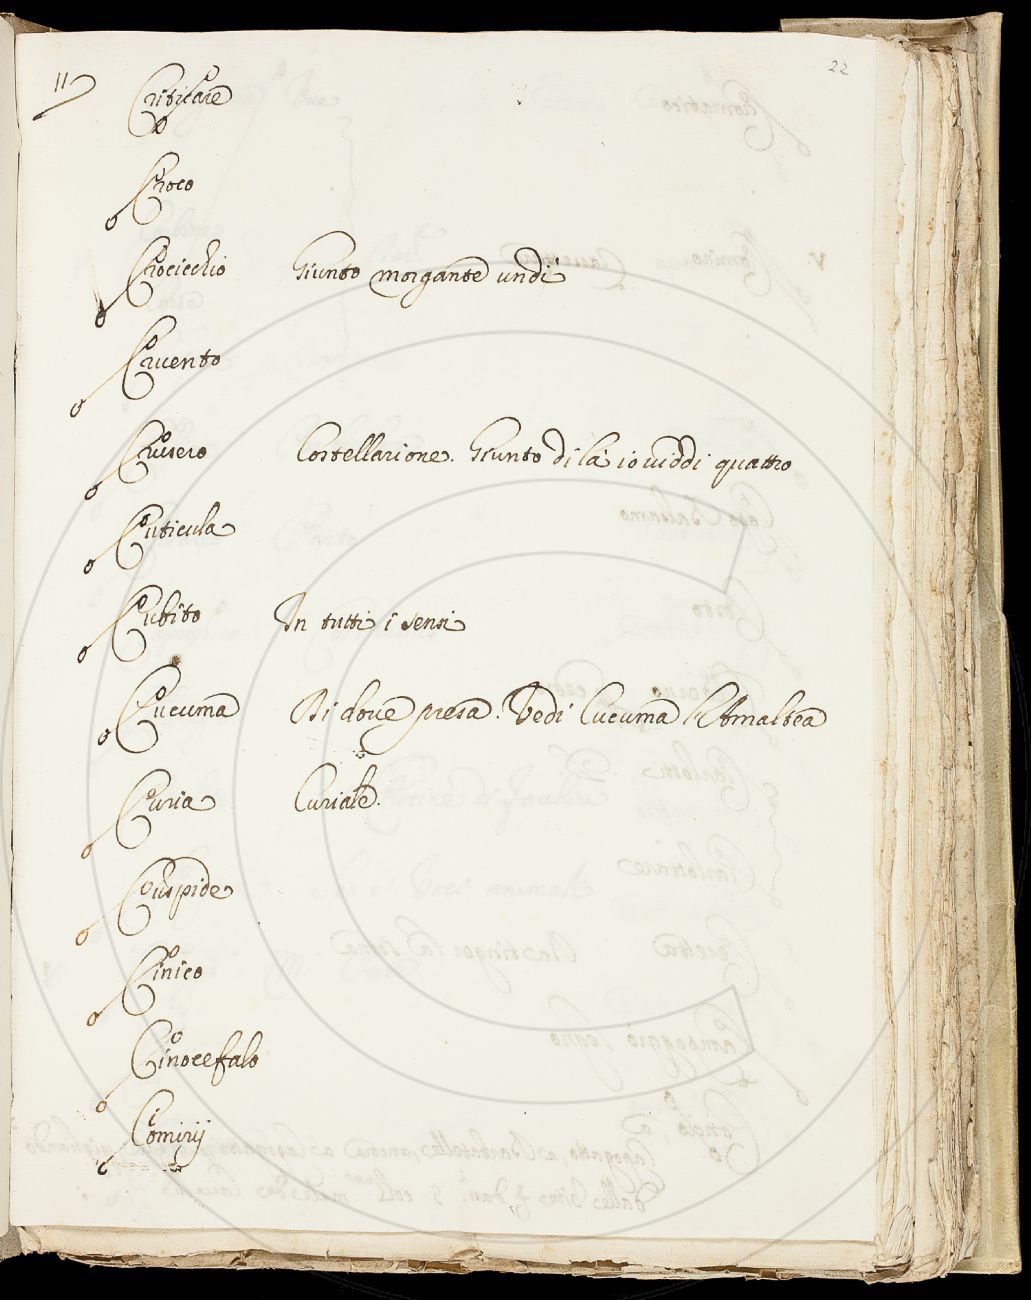 11
22
Criticare
Croco
Crocicchio Giunto morgante undi
Cruento
Crusero Costellazione. Giunto di là io viddi quattro
Cuticula
Cubito In tutti i sensi
Cucuma Di dove presa. Vedi Cucuma Amaltea
Curia Curiale.
Cuspide
Cinico
Cinocefalo
Comizij